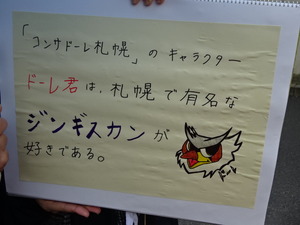 「コンサドーレ札幌」のキャラクター
ドーレ君は、札幌で有名な
ジンギスカンが
好きである。